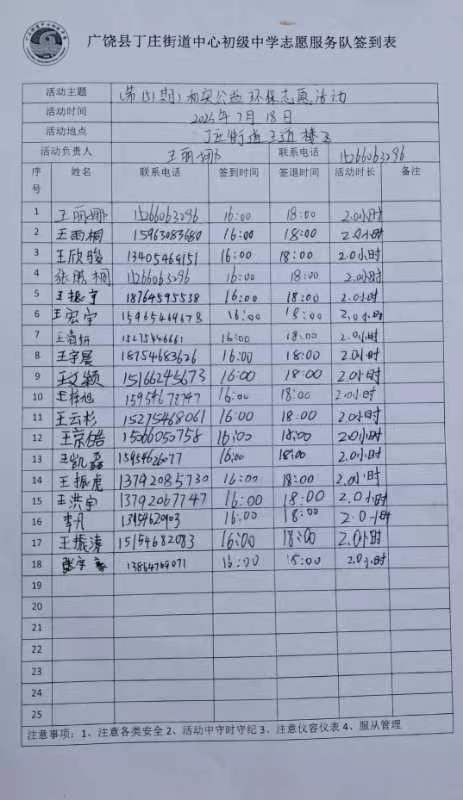 广饶县丁庄街道中心初级中学志愿服务队签到表
活动主题 (第151期) 公益环保志愿活动
活动时间 2024年7月18日
活动地点 丁庄街道王道
活动负责人 王丽娜 联系电话 15266063296
序号 姓名 联系电话 签到时间 签退时间 活动时长 备注
1 王丽娜 15266063296 16:00 18:00 2.0小时
2 王雨桐 15963083680 16:00 18:00 2.0小时
3 王欣骏 13405469151 16:00 18:00 2.0小时
4 张 桐 15266063296 16:00 18:00 2.0小时
5 王振宇 18764595538 16:00 18:00 2.0小时
6 王宏宇 15965469678 16:00 18:00 2.0小时
7 16:00 18:00 2.0小时
8 王宇晨 18754683626 16:00 18:00 2.0小时
9 王文颖 15166245673 16:00 18:00 2.0小时
10 王梓旭 15954673747 16:00 18:00 2.0小时
11 王云杉 15275468061 16:00 18:00 2.0小时
12 王 皓 15066050758 16:00 18:00 2.0小时
13 王凯磊 15954626077 16:00 18:00 2.0小时
14 王振虎 13792085730 16:00 18:00 2.0小时
15 王洪宇 13792067747 16:00 18:00 2.0小时
16 李凡 16:00 18:00 2.0小时
17 王振涛 15154682083 16:00 18:00 2.0小时
18 13864709071 16:00 18:00 2.0小时
19
20
21
22
23
24
25
注意事项：1、注意各类安全 2、活动中守时守纪 3、注意仪容仪表 4、服从管理